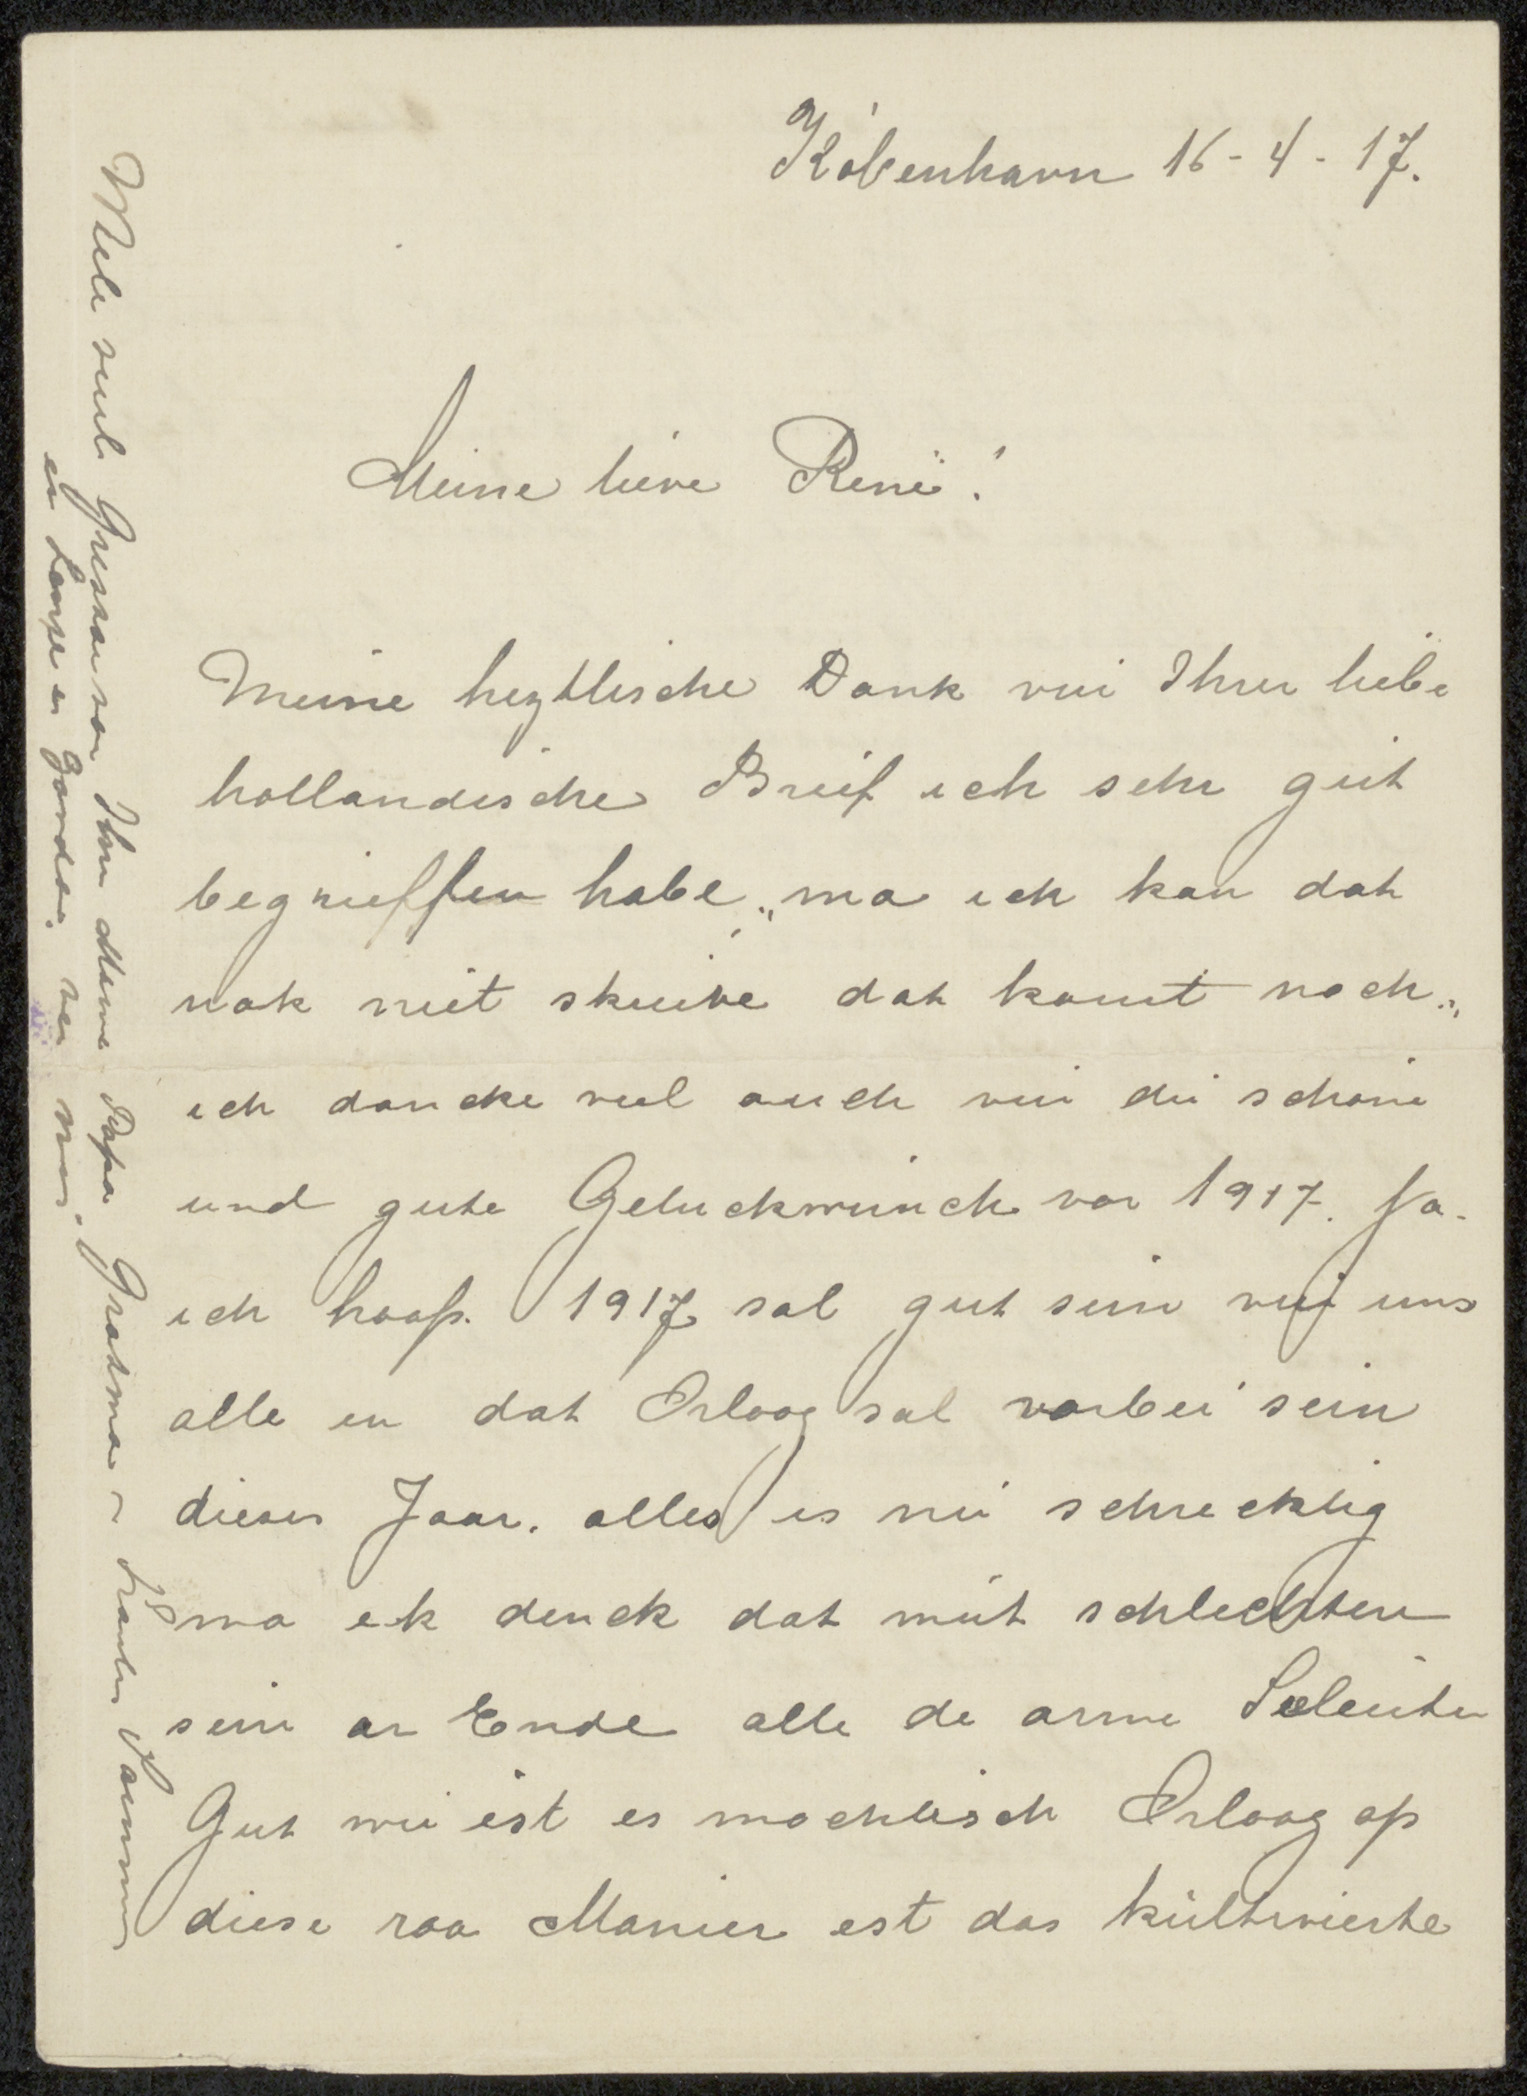 København 16-4-17.
Meine lieve René!
Meine heztlische Dank vui Ihrer liebe
hollandische Brief ich sehr gut
begrieffen habe „ma ich kan dat
nok niet skuive dat komt noch„
ich dancke viel auch vui die schöne
und gute Geluckwunch vor 1917. Ja.
ich hoop. 1917 sal gut sein vui uns
alle en dat Orloog sal vorbei sein
dieses Jaar. alles is nu schrecklig
ma ek denck dat müt schlechter
sein an Ende alle de arme Seeleute
Gut wie ist es mochlisch Orloog op
diese raa Manier est das kültivierte
Viele viele Grüssen von Ihre Mama Papa. Grodma
en Lange en Gordon. von mir.